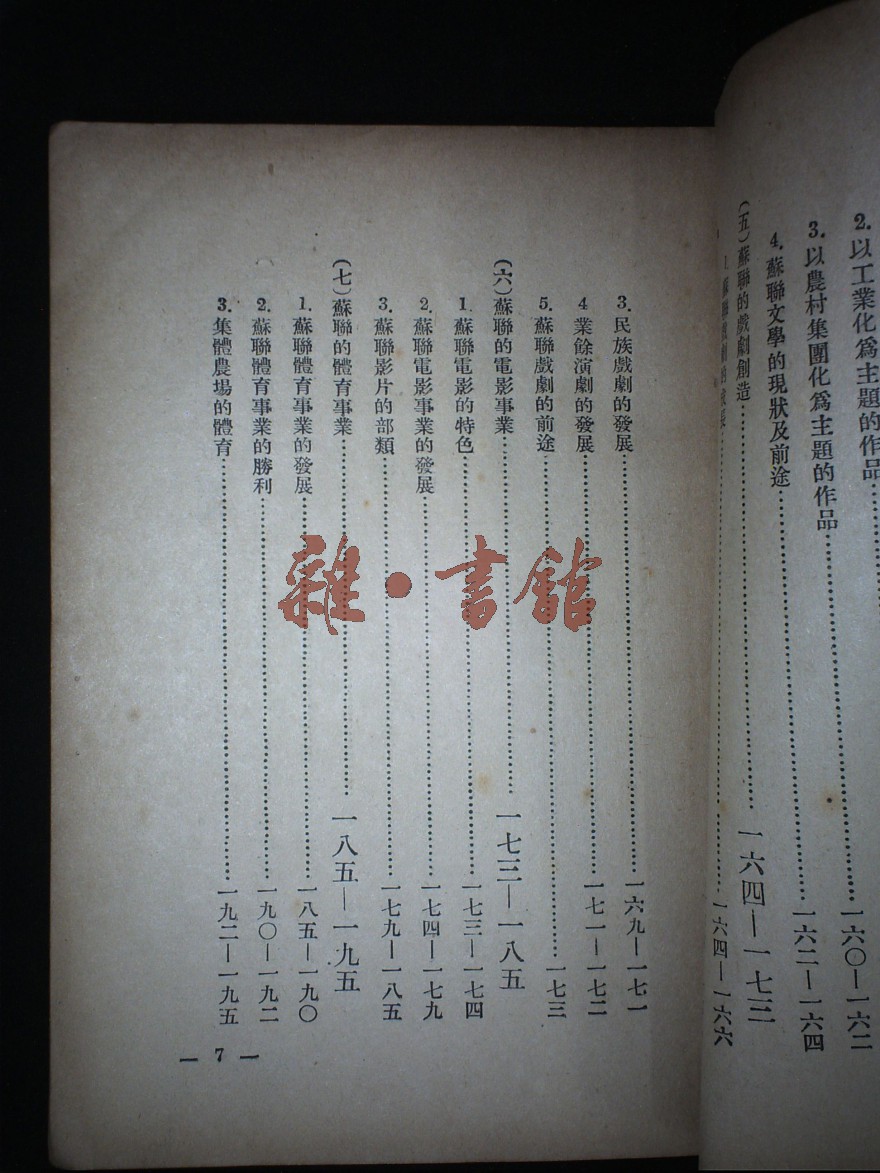 2. 以工業化爲主題的作品……一六〇—一六二
3. 以農村集團化爲主題的作品……一六二—一六四
4. 蘇聯文學的現狀及前途……
(五)蘇聯的戲劇創造……一六四—一七三
1. 蘇聯戲劇的成長……一六四—一六六
3. 民族戲劇的發展……一六九—一七一
4 業餘演劇的發展……一七一—一七二
5. 蘇聯戲劇的前途……一七三
(六)蘇聯的電影事業……一七三—一八五
1. 蘇聯電影的特色……一七三—一七四
2. 蘇聯電影事業的發展……一七四—一七九
3. 蘇聯影片的部類……一七九—一八五
(七)蘇聯的體育事業……一八五—一九五
1. 蘇聯體育事業的發展……一八五—一九〇
2. 蘇聯體育事業的勝利……一九〇—一九二
3. 集體農場的體育……一九二—一九五
— 7 —
雜·書館